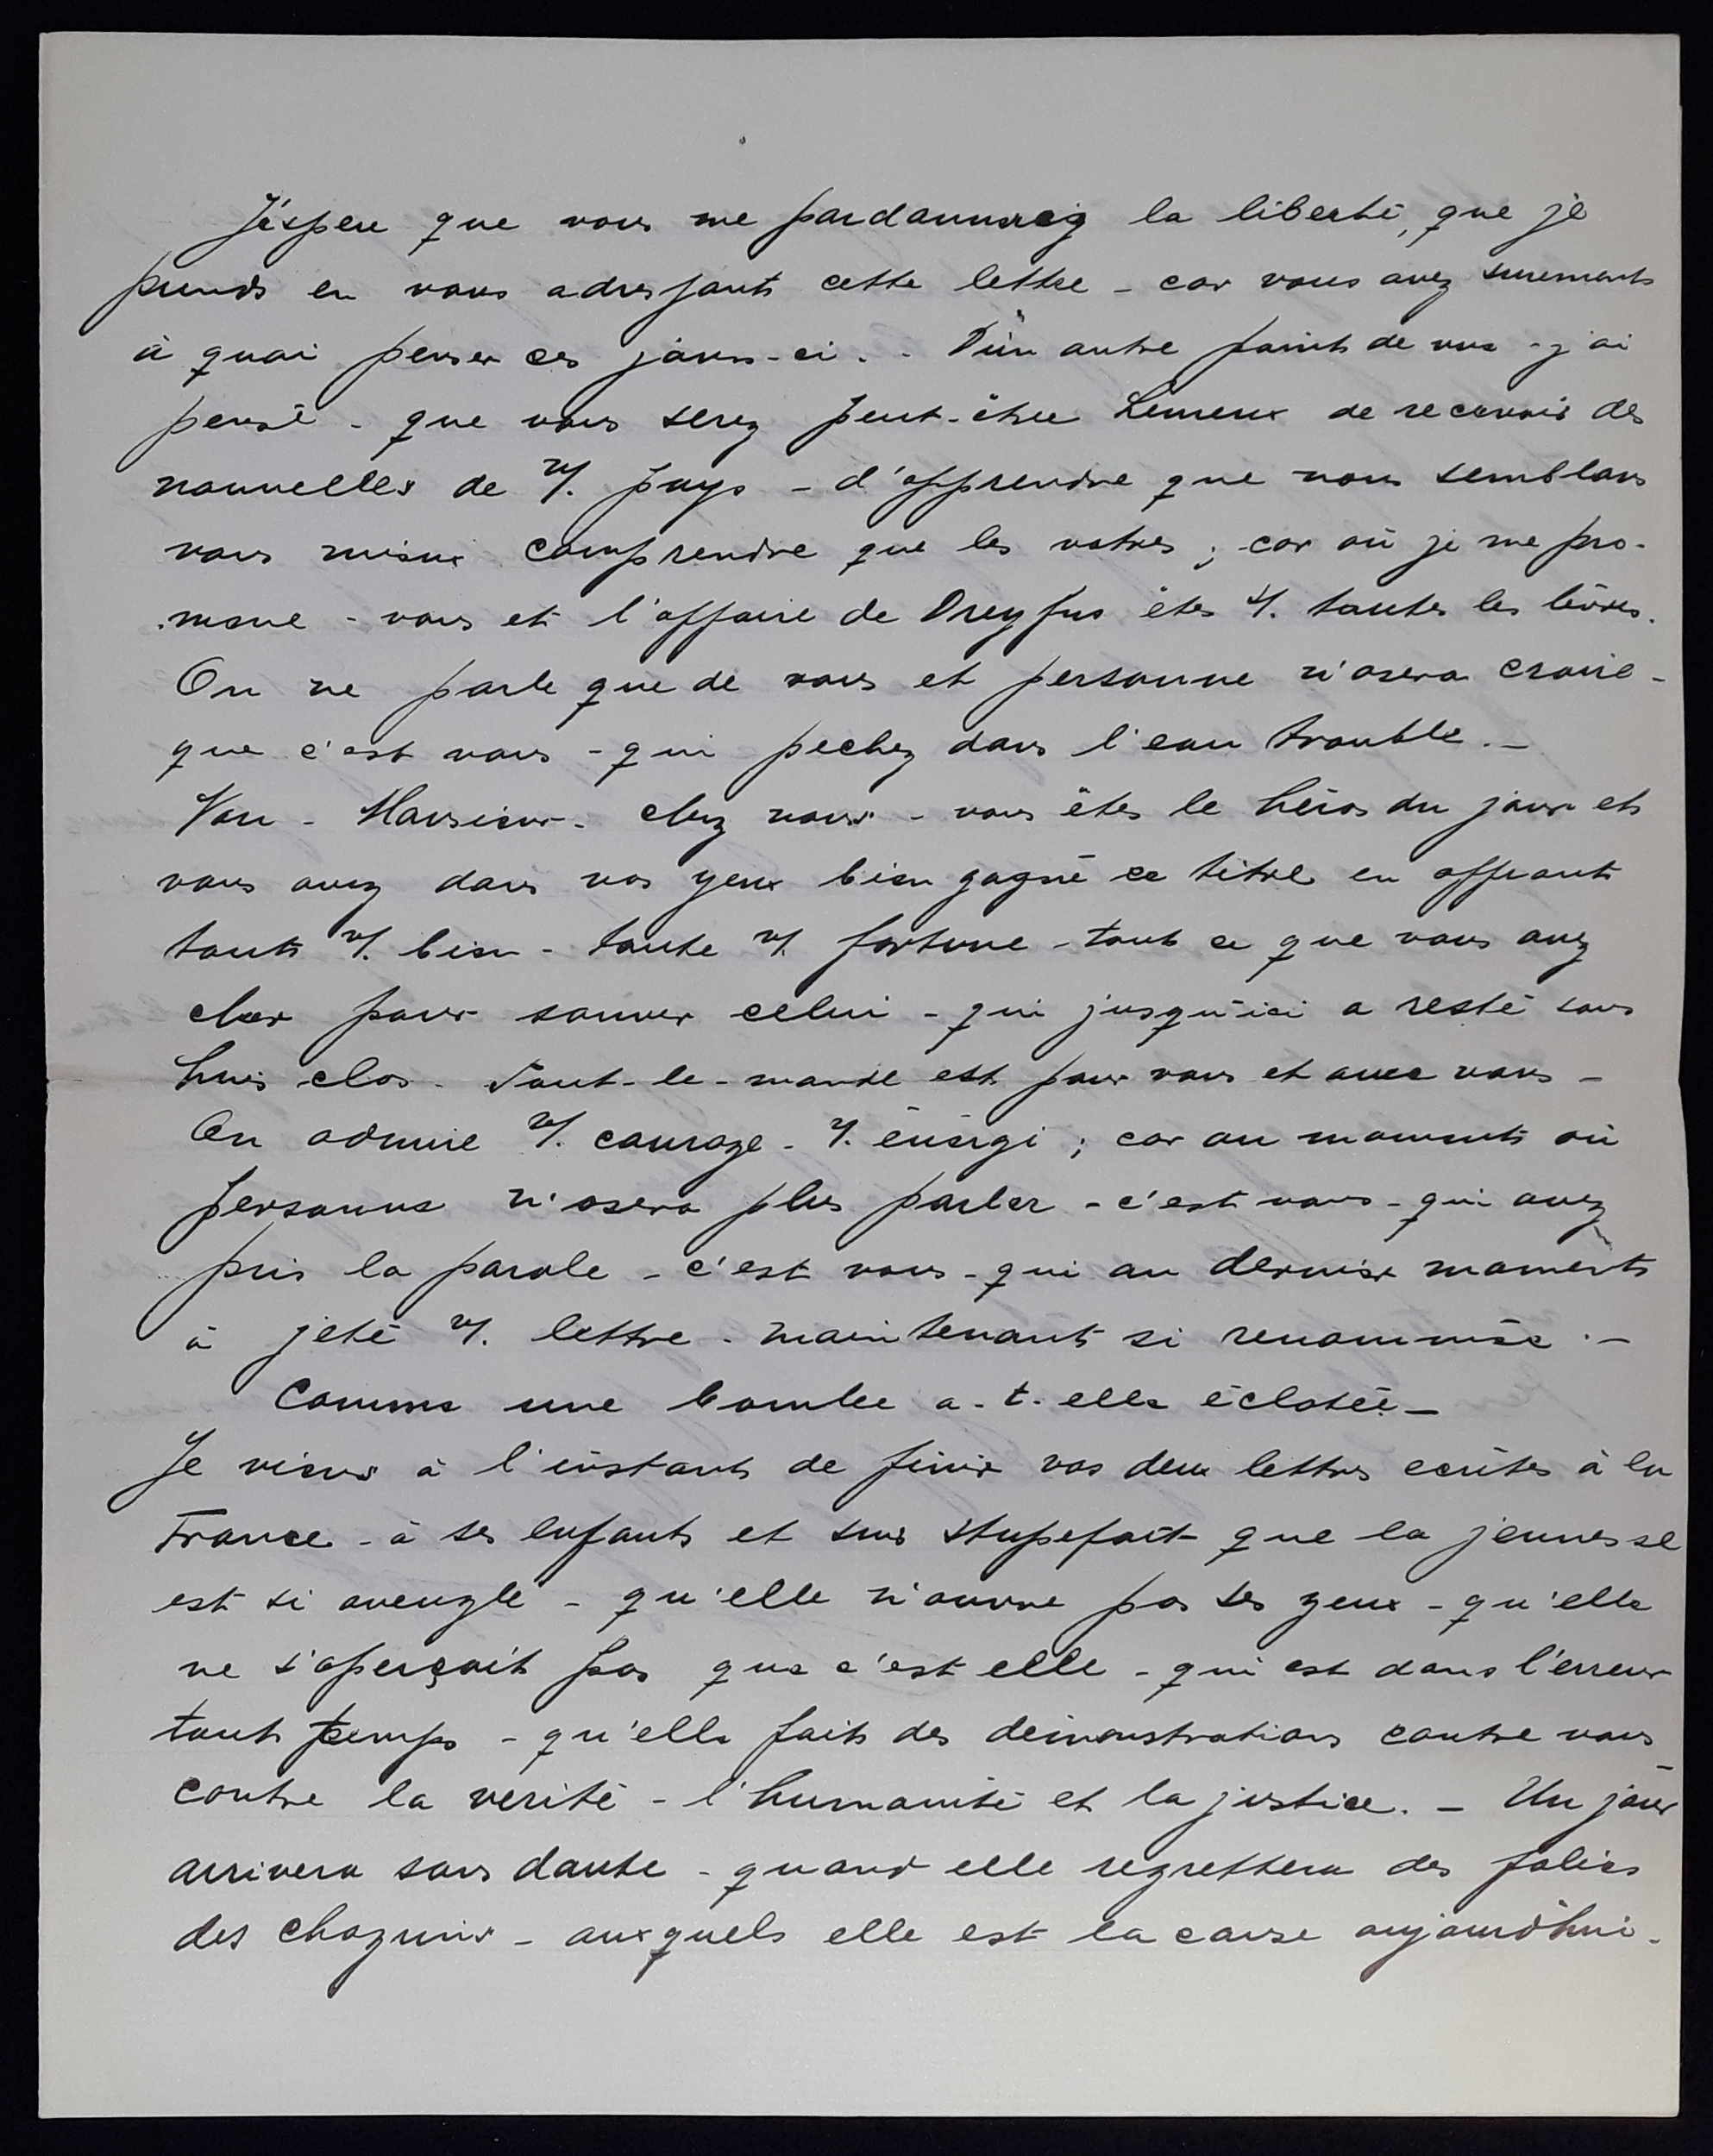 J'éspere que vous me pardonnneig la liberté, que je
prends en vous adressants cette lettre - car vous avez surements
à quoi penser ces jours-ci. - D'un autre points de vue - j'ai
pensé - que vous serez peut-être heureux de recevoir des
nouvelles de n/. pays - d'apprendre que nous semblons
vous mieux comprendre que les votres ; car où je me pro-
mene - vous et l'affaire de Dreyfus êtes s/. toutes les lèvres.
On ne parle que de vous et personne n'osera croire -
que c'est vous - qui pechez dans l'eau trouble. -
Vous - Monsieur - chez nous - vous êtes le héros du jour et
vous avez dans nos yeux bien gagné ce titre en offrants
touts v/. bien - toute v/. fortune - tout ce que vous avez
cher pour sauver celui - qui jusqu'ici a resté sous
huis clos. Tout-le-monde est pour vous et avec vous -
On admire v/. courage - v/. énérgi ; car au moments où
personne n'osera plus parler - c'est vous - qui avez
pris la parole - c'est vous - qui au dernier moments
à jeté v/. lettre - maintenant si renommée. -
Comme une bombe a-t-elle éclatée -
Je viens à l'instants de finir vos deux lettres ecrites à la
France - à ses enfants et suis stupefait que la jeunesse
est si aveugle - qu'elle n'ouvre pas ses yeux - qu'elle
ne s'aperçoit pas que c'est elle - qui est dans l'erreur
touts temps - qu'elle faits des démonstrations contre vous
contre la verité - l'humanité et la justice. - Un jour
arrivera sans doute - quand elle regrettera des folies
des chagrins - auxquels elle est la cause aujourd'hui -